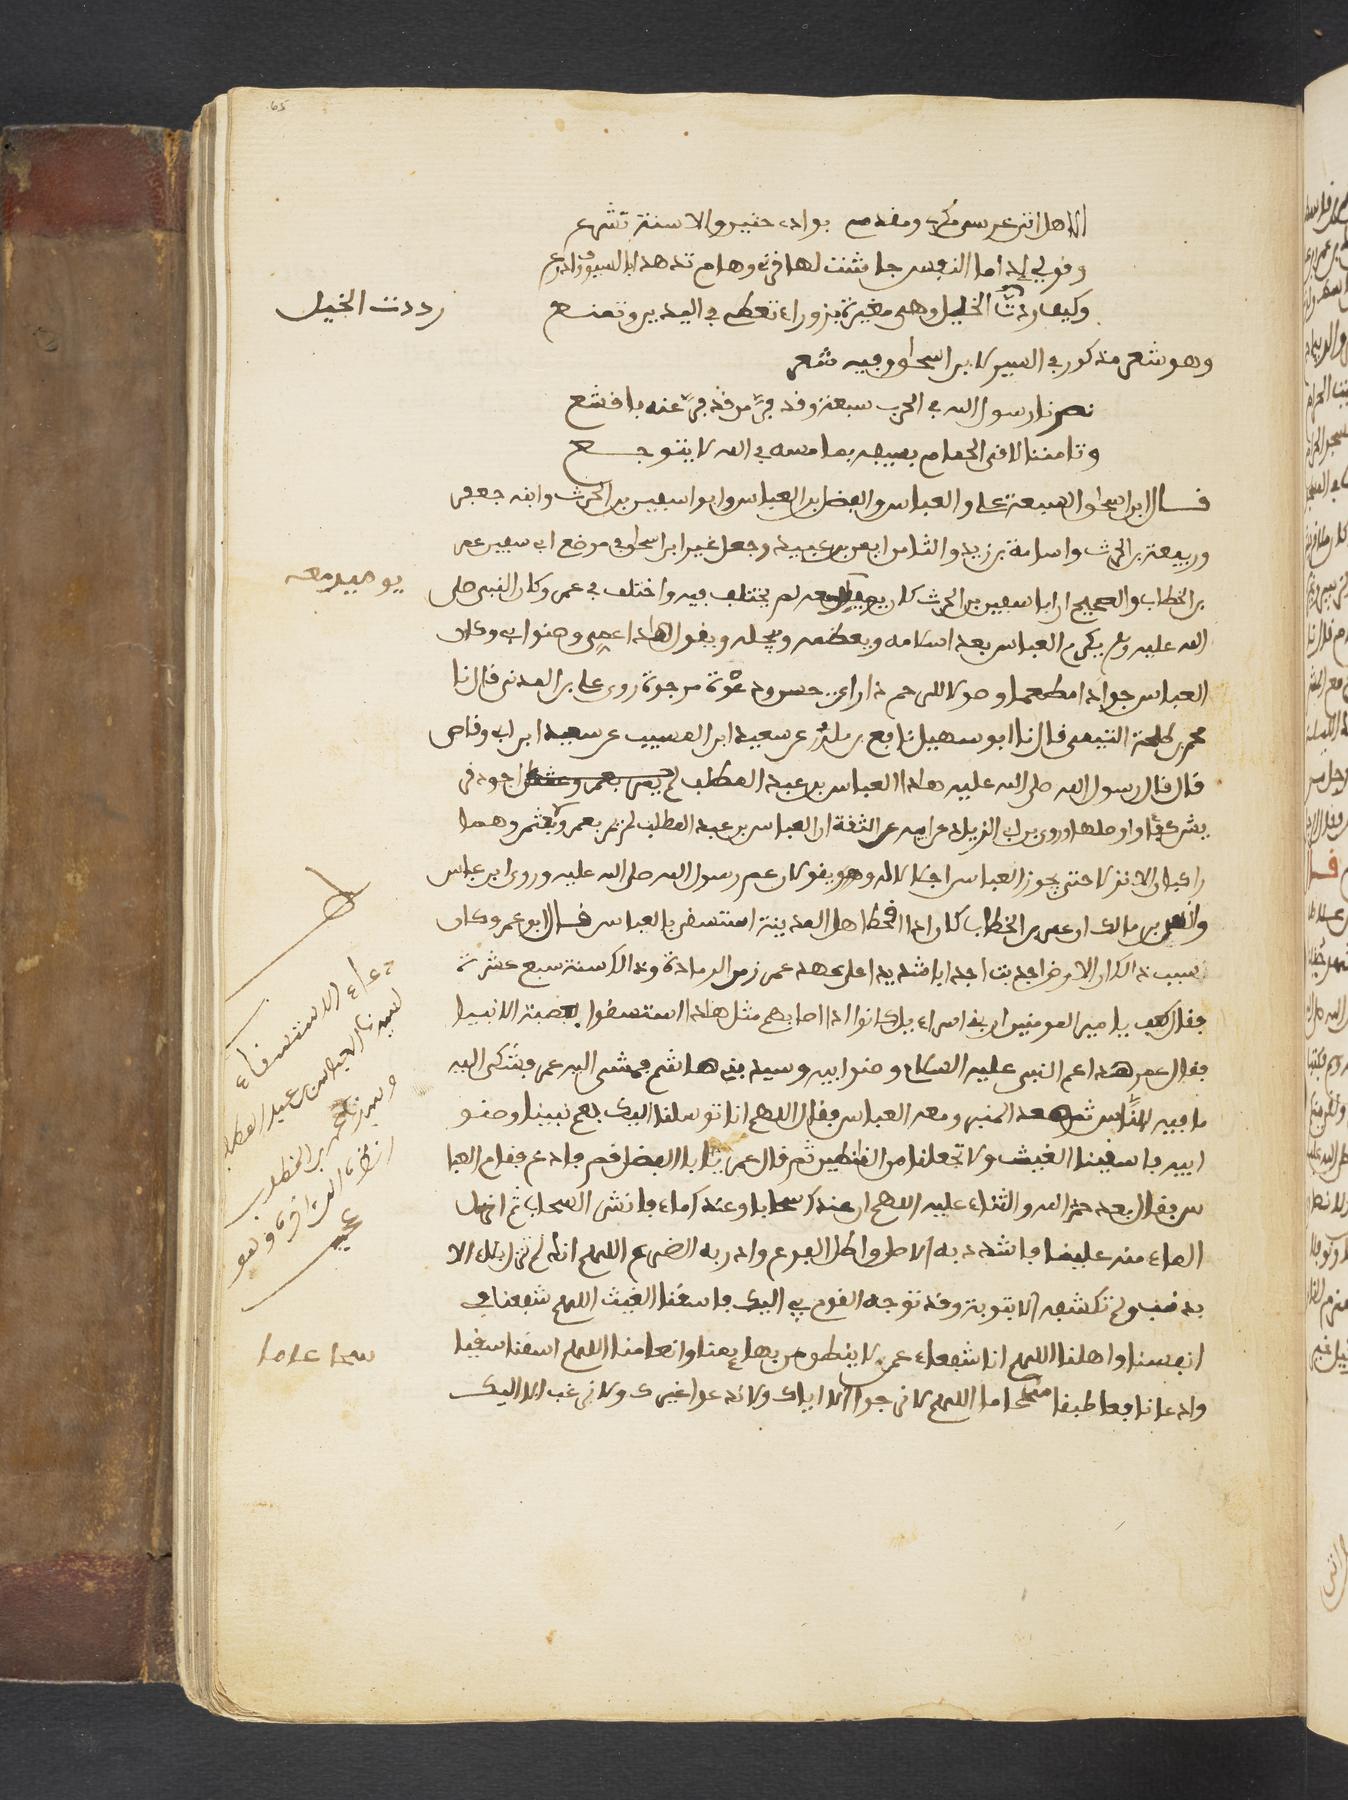 الا هل اتى عرسي مكري ومقدمي بوادي حنين والاسنة تشرع
وقولي اذا ما النفس جاشت لها قري وهام تدهدا بالسيوف وادرع
وكيف رددت الخيل وهي مغيرة بزوراء تعطي في اليدين وتمنع
رددت الخيل
وهو شعر مذكور في السير لابن اسحاق وفيه شعر
نصرنا رسول الله في الحرب سبعة وقد فر من قد فر عنه فاقشع
وثامننا لاقى الحمام بسيفه بما مسه في الله لا يتوجع
قال ابن اسحاق السبعة علي والعباس والفضل بن العباس وابو سفين بن الحرث وابنه جعفر
وربيعة بن الحرث واسامة بن زيد والثامن ايمن بن عبيد وجعل غير ابن اسحاق في موضع ابي سفين عمر
بن الخطاب والصحيح ان ابا سفين بن الحرث كان يوميذ معه لم يختلف فيه واختلف في عمر وكان النبي صلى
يوميذ معه
الله عليه وسلم يكرم العباس بعد اسلامه ويعظمه ويجله ويقول هذا عمي وصنو ابي وكان
العباس جوادا مطعما وصولا للرحم ذا راي حسن ودعوة مرجوة روى علي بن المدني قال نا
محمد بن طلحة التيمي قال نا ابو سهيل نافع بن ملك عن سعيد ابن المسيب عن سعيد ابن ابي وقاص
قال قال رسول الله صلى الله عليه هذا العباس بن عبد المطلب اجود قر
يش كفا واوصلها وروى بن ابي الزناد عن ابيه عن الثقة ان العباس بن عبد المطلب لم يمر بعمر ولا بعثمن وهما
راكبان الا نزلا حتى يجوز العباس اجلالا له وهو يقولان عم رسول الله صلى الله عليه وروى ابن عباس
وانس بن مالك ان عمر بن الخطاب كان اذا قحط اهل المدينة استسقى بالعباس قال ابو عمر وكان
سبب ذلك ان الارض اجدبت اجدابا شديدا على عهد عمر زمن الرمادة وذلك سنة سبع عشرة
فقال كعب يا امير المومنين ان بني اسراءيل كانوا اذا اصابهم مثل هذا استسقوا بعصبة الانبيا
فقال عمر هذا عم النبي عليه السلام وصنو ابيه وسيد بني هاشم فمشى اليه عمر فشكى اليه
ما فيه الناس ثم صعد المنبر ومعه العباس فقال اللهم انا توسلنا اليك بعم نبينا وصنو
ابيه فاسقنا الغيث ولا تجعلنا من القانطين ثم قال عمر يا ابا الفضل قم فادع فقام العبا
س فقال بعد حمد الله والثناء عليه اللهم ان عندك سحابا وعندك ماء فانشر السحاب ثم انزل
الماء منه علينا فاشدد به الاصل واطل الفرع وادر به الضرع اللهم انك لم تنزل بلاء الا
بذنب ولم تكشفه الا بتوبة وقد توجه القوم بي اليك فاسقنا الغيث اللهم شفعنا في
انفسنا واهلنا اللهم انا شفعاء عمن لا ينطق من بهايمنا وانعامنا اللهم اسقنا سقيا
وادعا نافعا طبقا سحا عاما اللهم لا نرجوا الا اياك ولا ندعوا غيرك ولا نرغب الا اليك
دعاء الاستسقاء
لسيدنا العباس بن عبد المطلب
وسيدنا عمر بن الخطاب
رضي الله
عجيب
سحا عاما